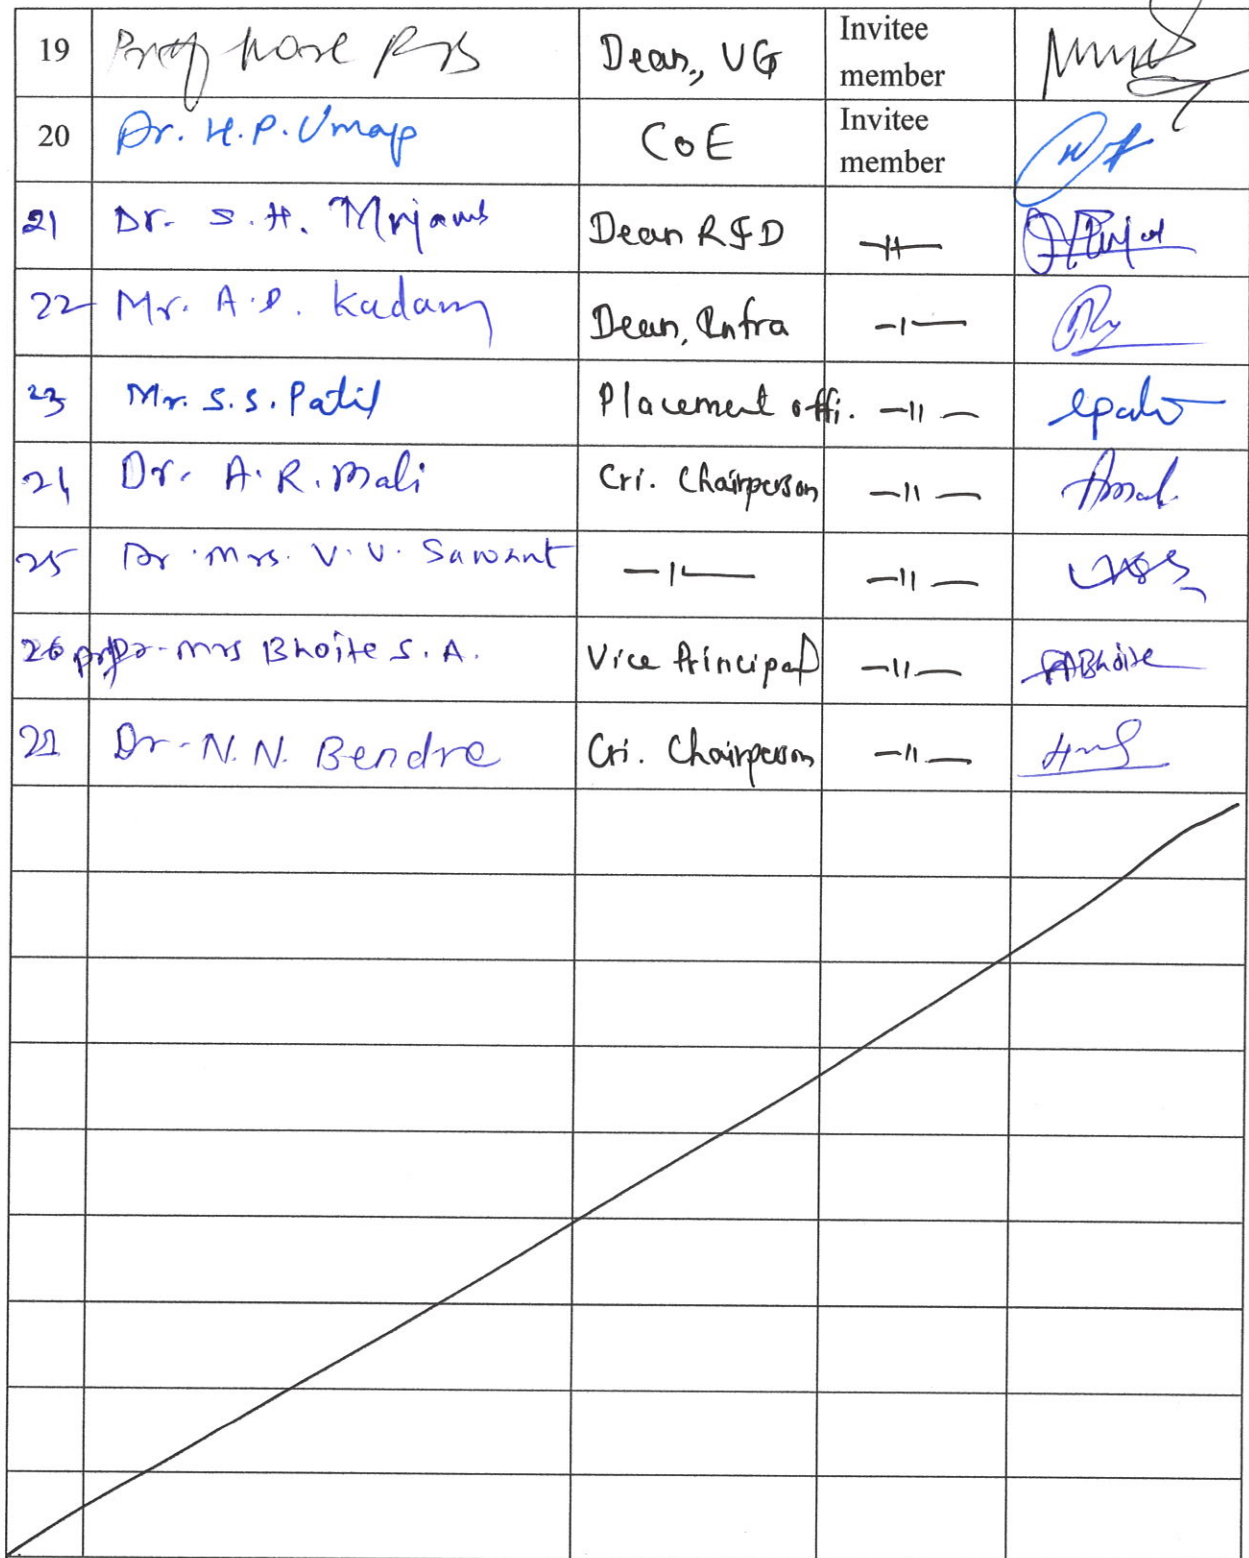 19 Prof more Dean, UG Invitee member
20 Dr. H.P. Umap CoE Invitee member
21 Dr. S.H. Mujawar Dean R&D -11-
22 Mr. A.D. Kadam Dean, Infra -1-
23 Mr. S.S. Patil Placement offi. -11-
24 Dr. A.R. Mali Cri. Chairperson -11-
25 Dr. Mrs. V.V. Sawant -1- -11-
26 Prof Dr. Mrs Bhoite S.A. Vice Principal -11- SABhoite
27 Dr. N.N. Bendre Cri. Chairperson -11-